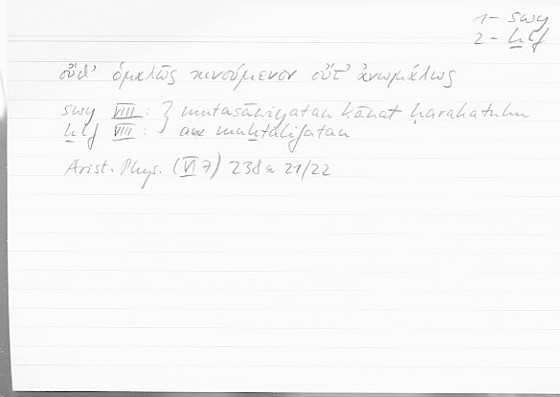 1 - swy
2 - ḫlf
οὔθ' ὁμαλῶς κινούμενον οὔτ' ἀνωμάλως
swy VIII : } mutasāwiyatan kānat ḥarakatuhu
ḫlf VIII : } au muḫtalifatan
Arist. Phys. (VI 7) 238a 21/22